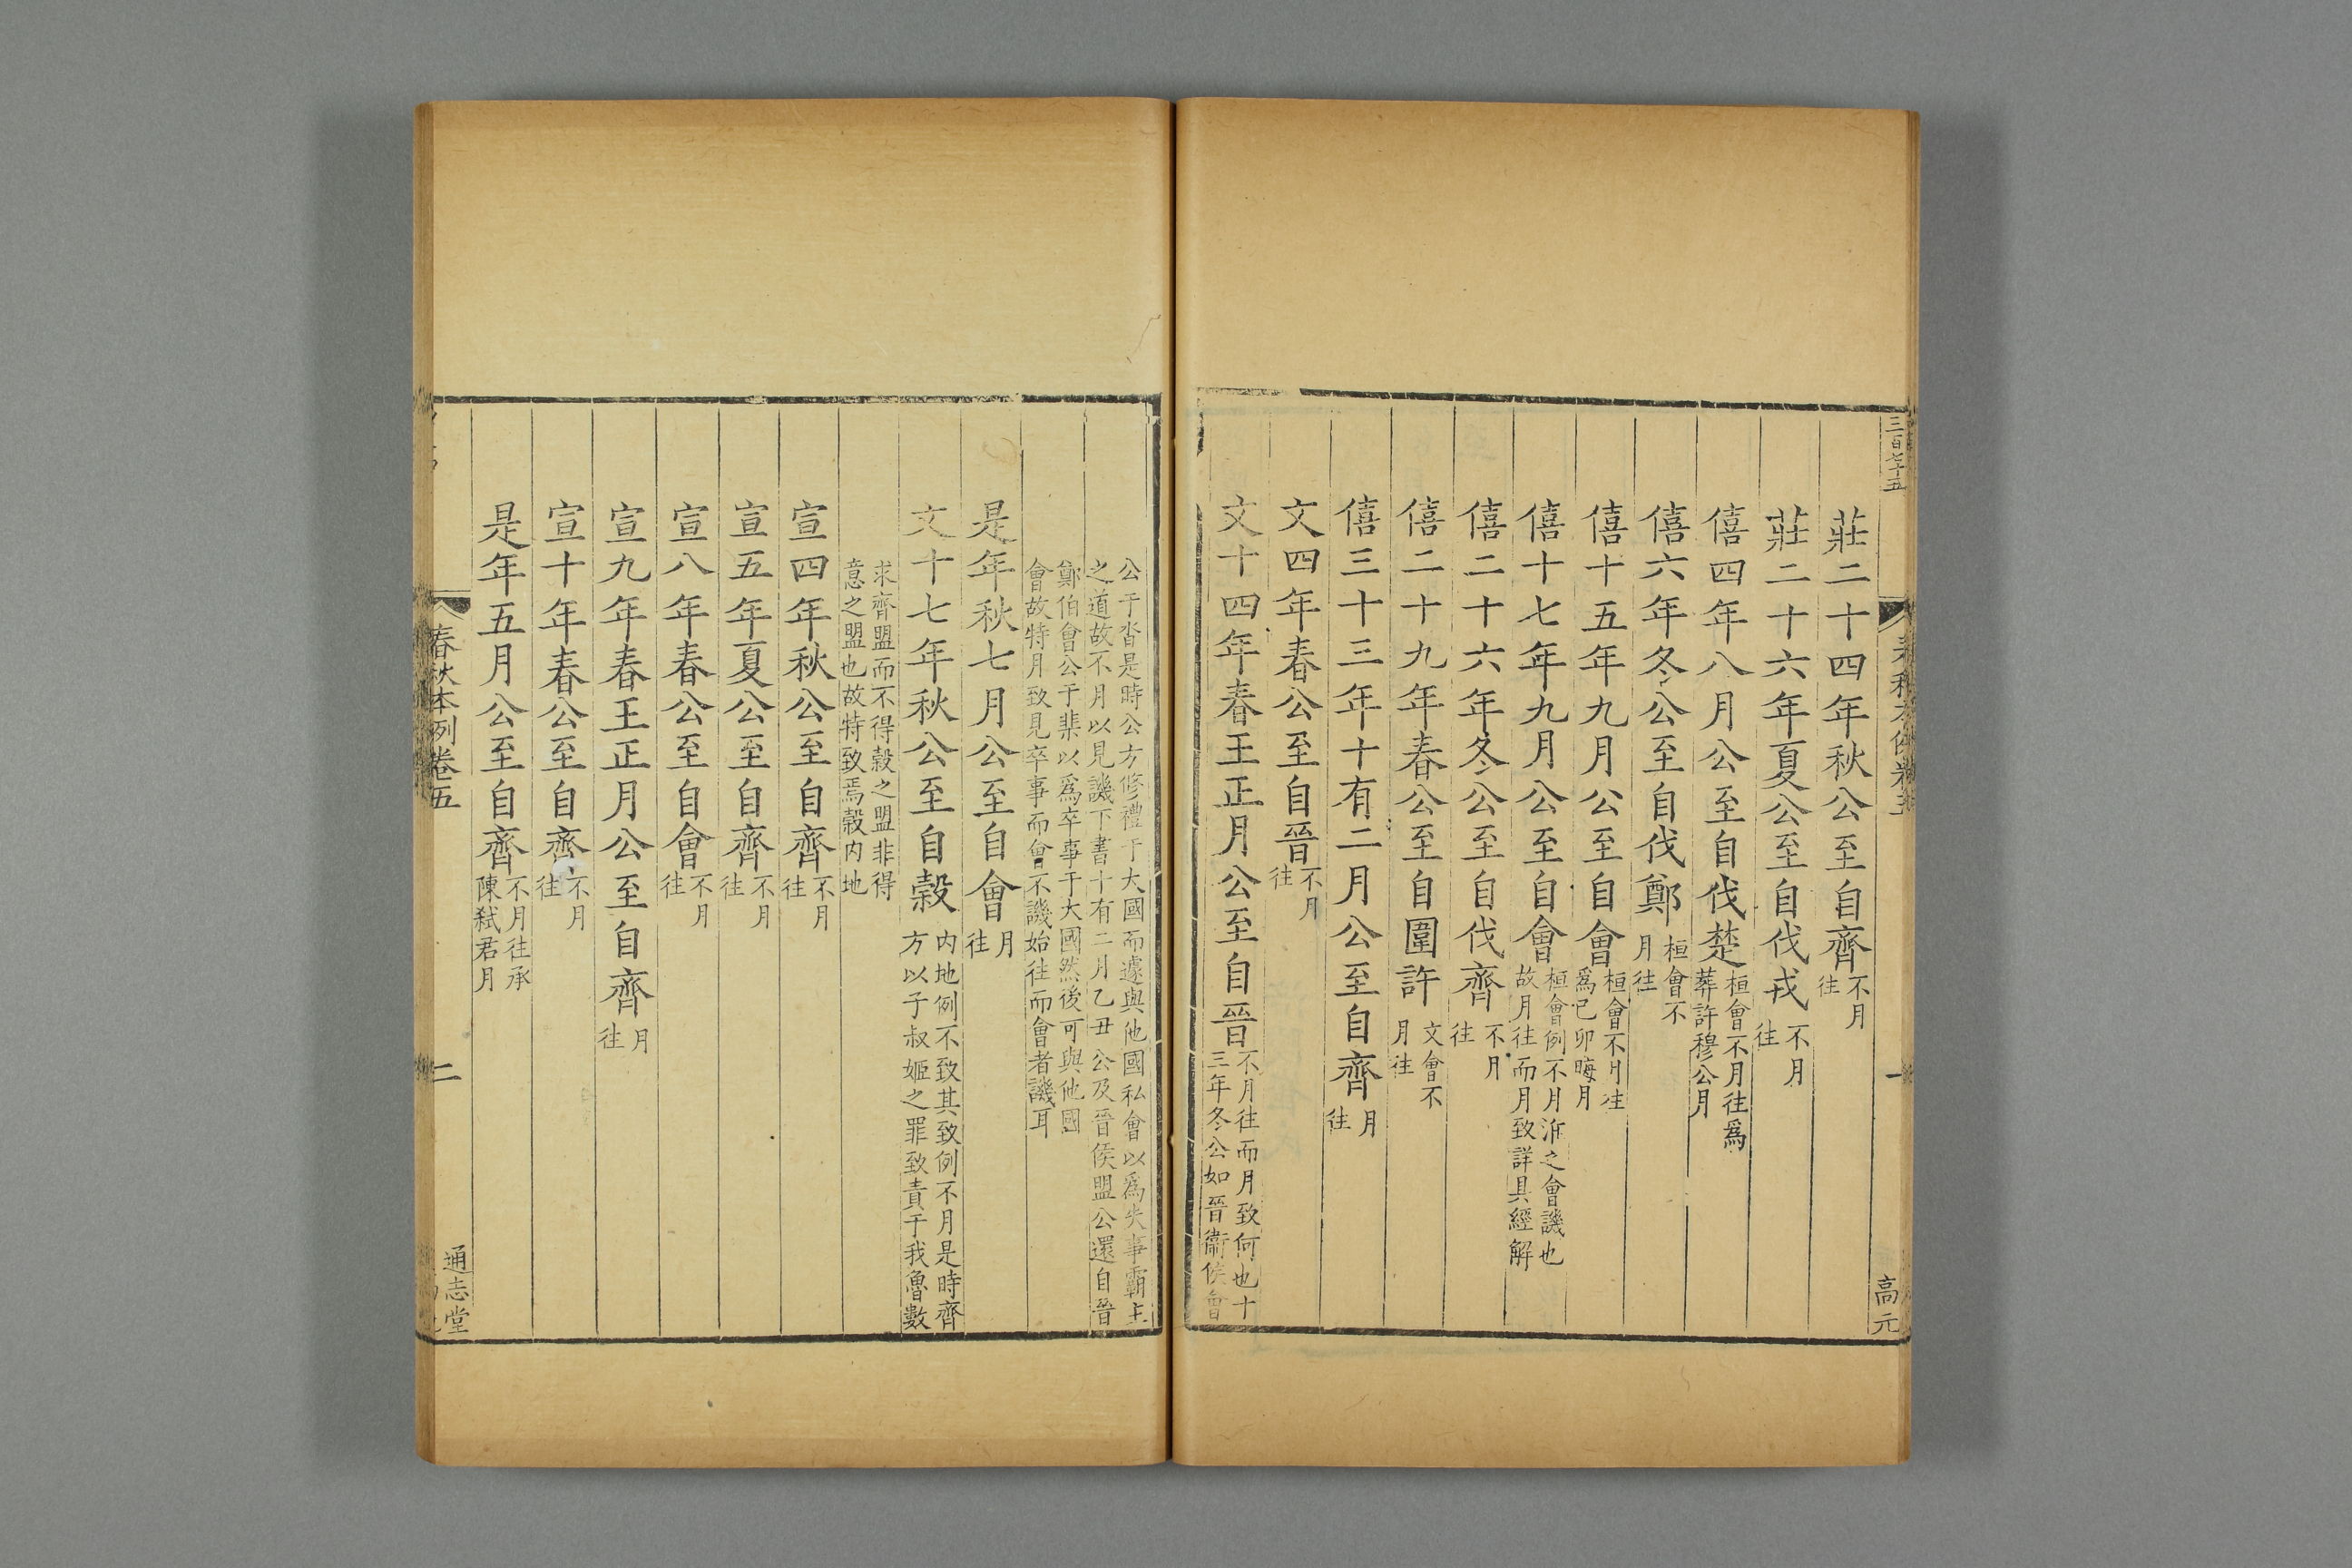 三百七十五
春秋本例卷五
一
高元
莊二十四年秋公至自齊不月
往
莊二十六年夏公至自伐戎不月
往
僖四年八月公至自伐楚桓會不月往爲
葬許穆公月
僖六年冬公至自伐鄭桓會不
月往
僖十五年九月公至自會桓會不月往
爲己卯晦月
僖十七年九月公至自會桓會例不月淮之會譏也
故月往而月致詳具經解
僖二十六年冬公至自伐齊不月
往
僖二十九年春公至自圍許文會不
月往
僖三十三年十有二月公至自齊月
往
文四年春公至自晉不月
往
文十四年春王正月公至自晉不月往而月致何也十
三年冬公如晉衞侯會
公于沓是時公方修禮于大國而遽與他國私會以爲失事霸主
之道故不月以見譏下書十有二月乙丑公及晉侯盟公還自晉
鄭伯會公于棐以爲卒事于大國然後可與他國
會故特月致見卒事而會不譏始往而會者譏耳
是年秋七月公至自會月
往
文十七年秋公至自穀内地例不致其致例不月是時齊
方以子叔姬之罪致責于我魯數
求齊盟而不得穀之盟非得
意之盟也故特致焉穀内地
宣四年秋公至自齊不月
往
宣五年夏公至自齊不月
往
宣八年春公至自會不月
往
宣九年春王正月公至自齊月
往
宣十年春公至自齊不月
往
是年五月公至自齊不月往承
陳弑君月
春秋本例卷五
二
通志堂